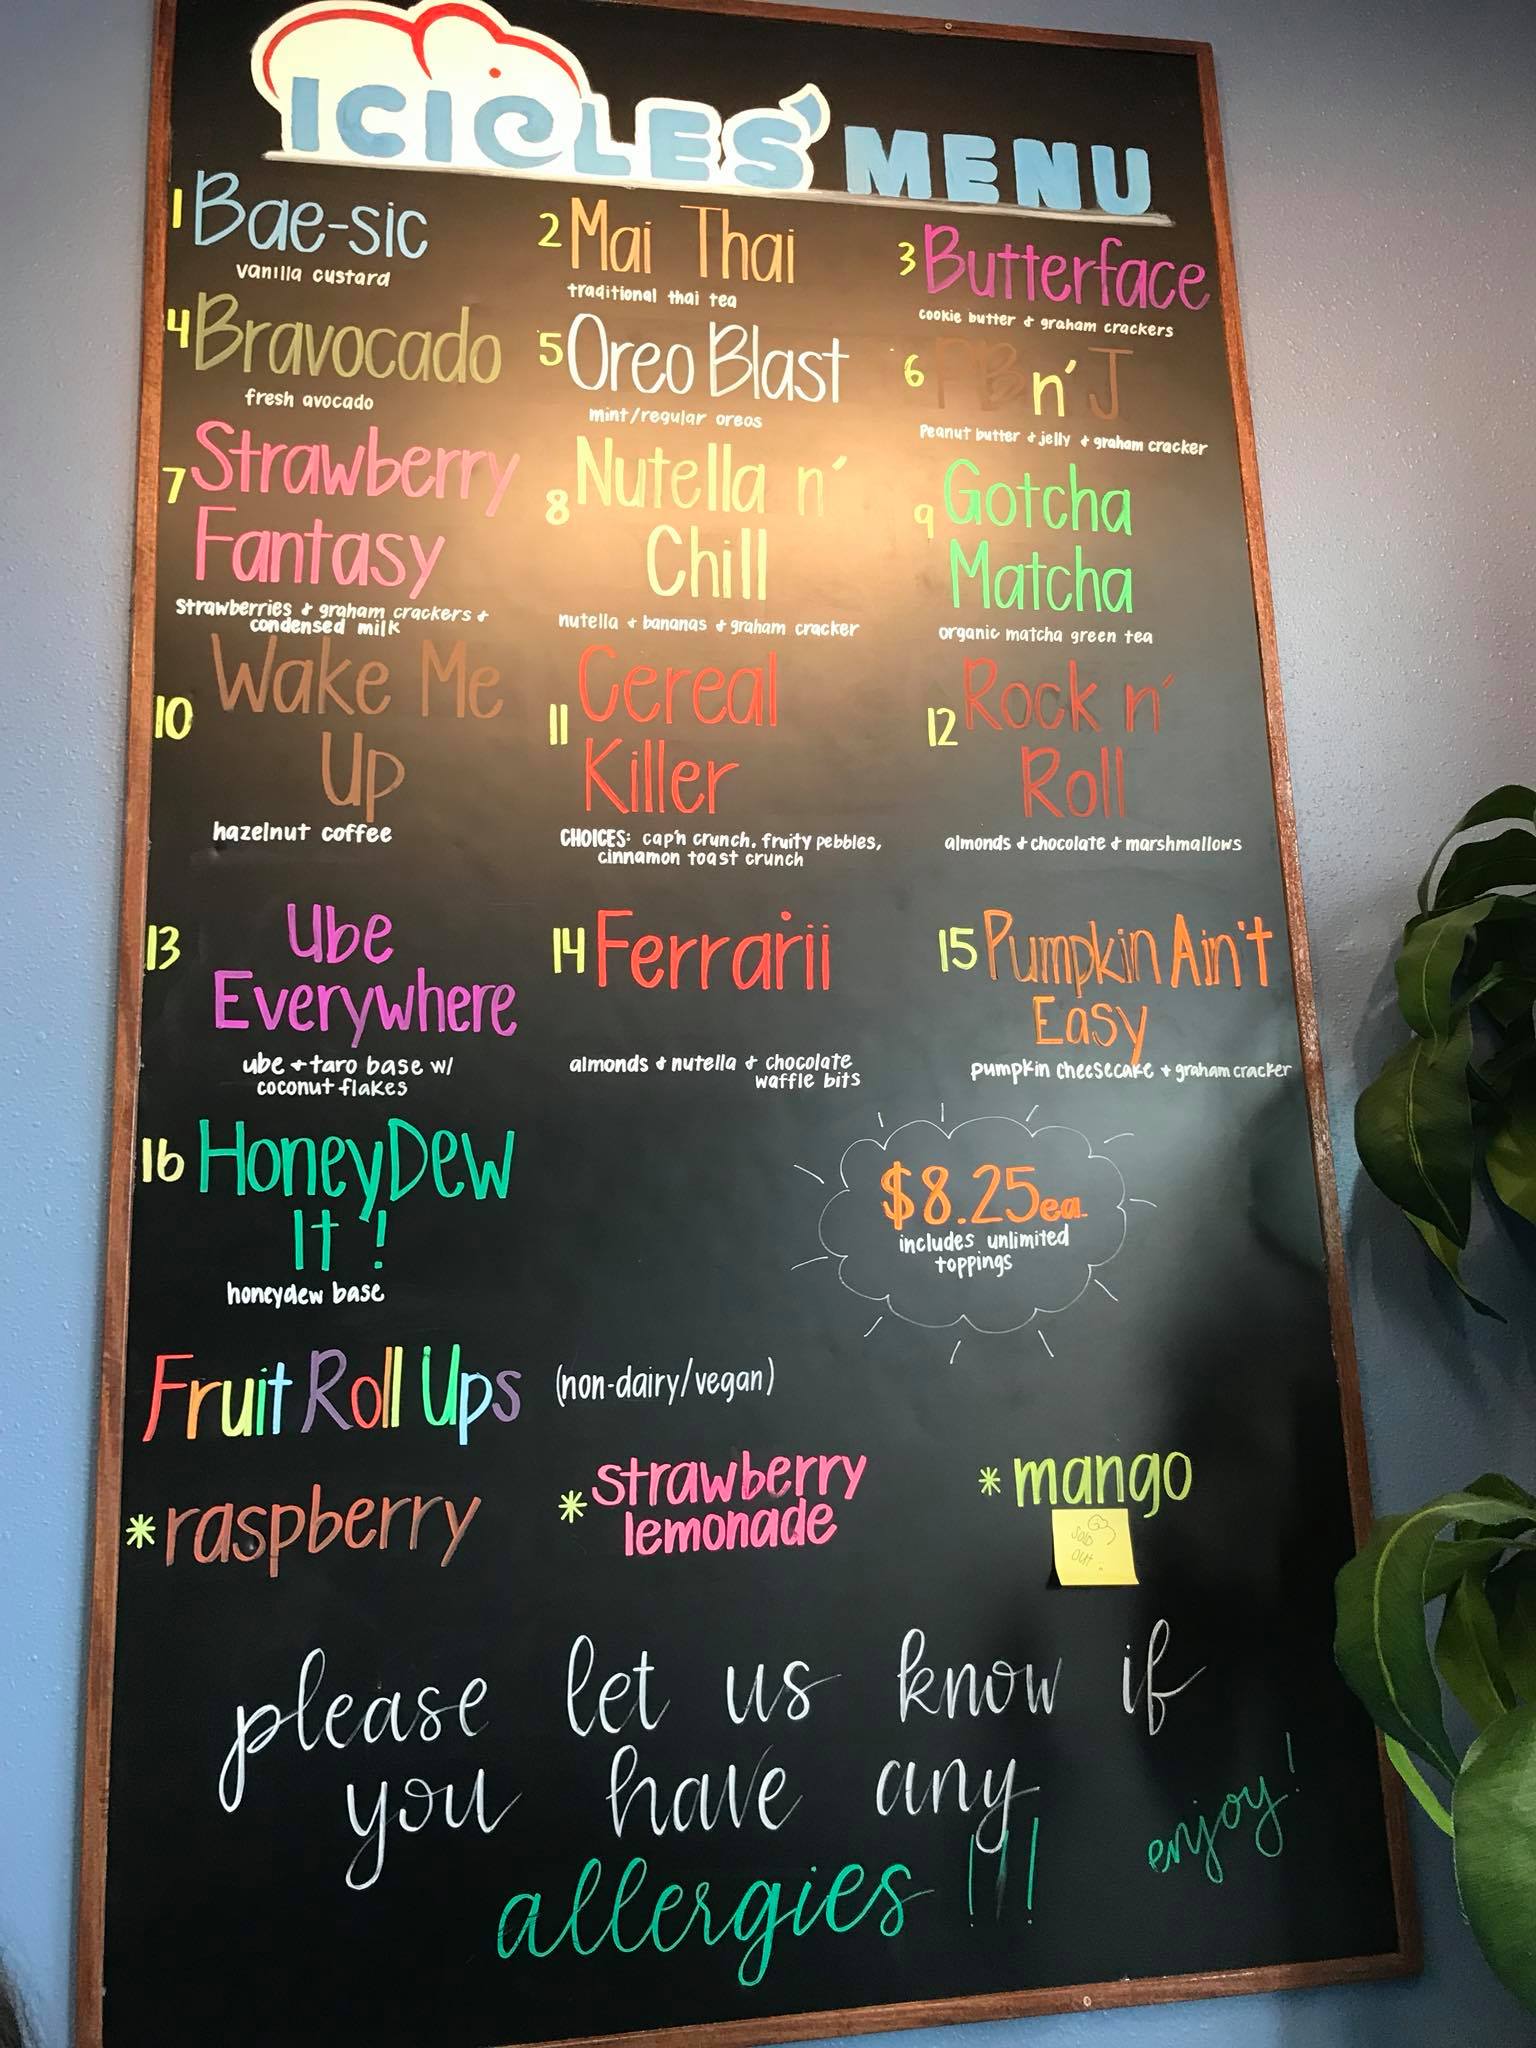 ICICLES' MENU
1 Bae-sic
vanilla custard
2 Mai Thai
traditional thai tea
3 Butterface
cookie butter & graham crackers
4 Bravocado
fresh avocado
5 Oreo Blast
mint/regular oreos
6 PB n' J
Peanut butter & jelly & graham cracker
7 Strawberry
Fantasy
strawberries & graham crackers &
condensed milk
8 Nutella n'
Chill
nutella & bananas & graham cracker
9 Gotcha
Matcha
organic matcha green tea
10 Wake Me
Up
hazelnut coffee
11 Cereal
Killer
CHOICES: cap'n crunch, fruity pebbles,
cinnamon toast crunch
12 Rock n'
Roll
almonds & chocolate & marshmallows
13 Ube
Everywhere
ube & taro base w/
coconut flakes
14 Ferrarii
almonds & nutella & chocolate
waffle bits
15 Pumpkin Ain't
Easy
pumpkin cheesecake & graham cracker
16 HoneyDew
It !
honeydew base
$8.25 ea.
includes unlimited
toppings
Fruit Roll Ups (non-dairy/vegan)
* raspberry
* strawberry
lemonade
* mango
sold
out!
please let us know if
you have any
allergies !!!
enjoy!